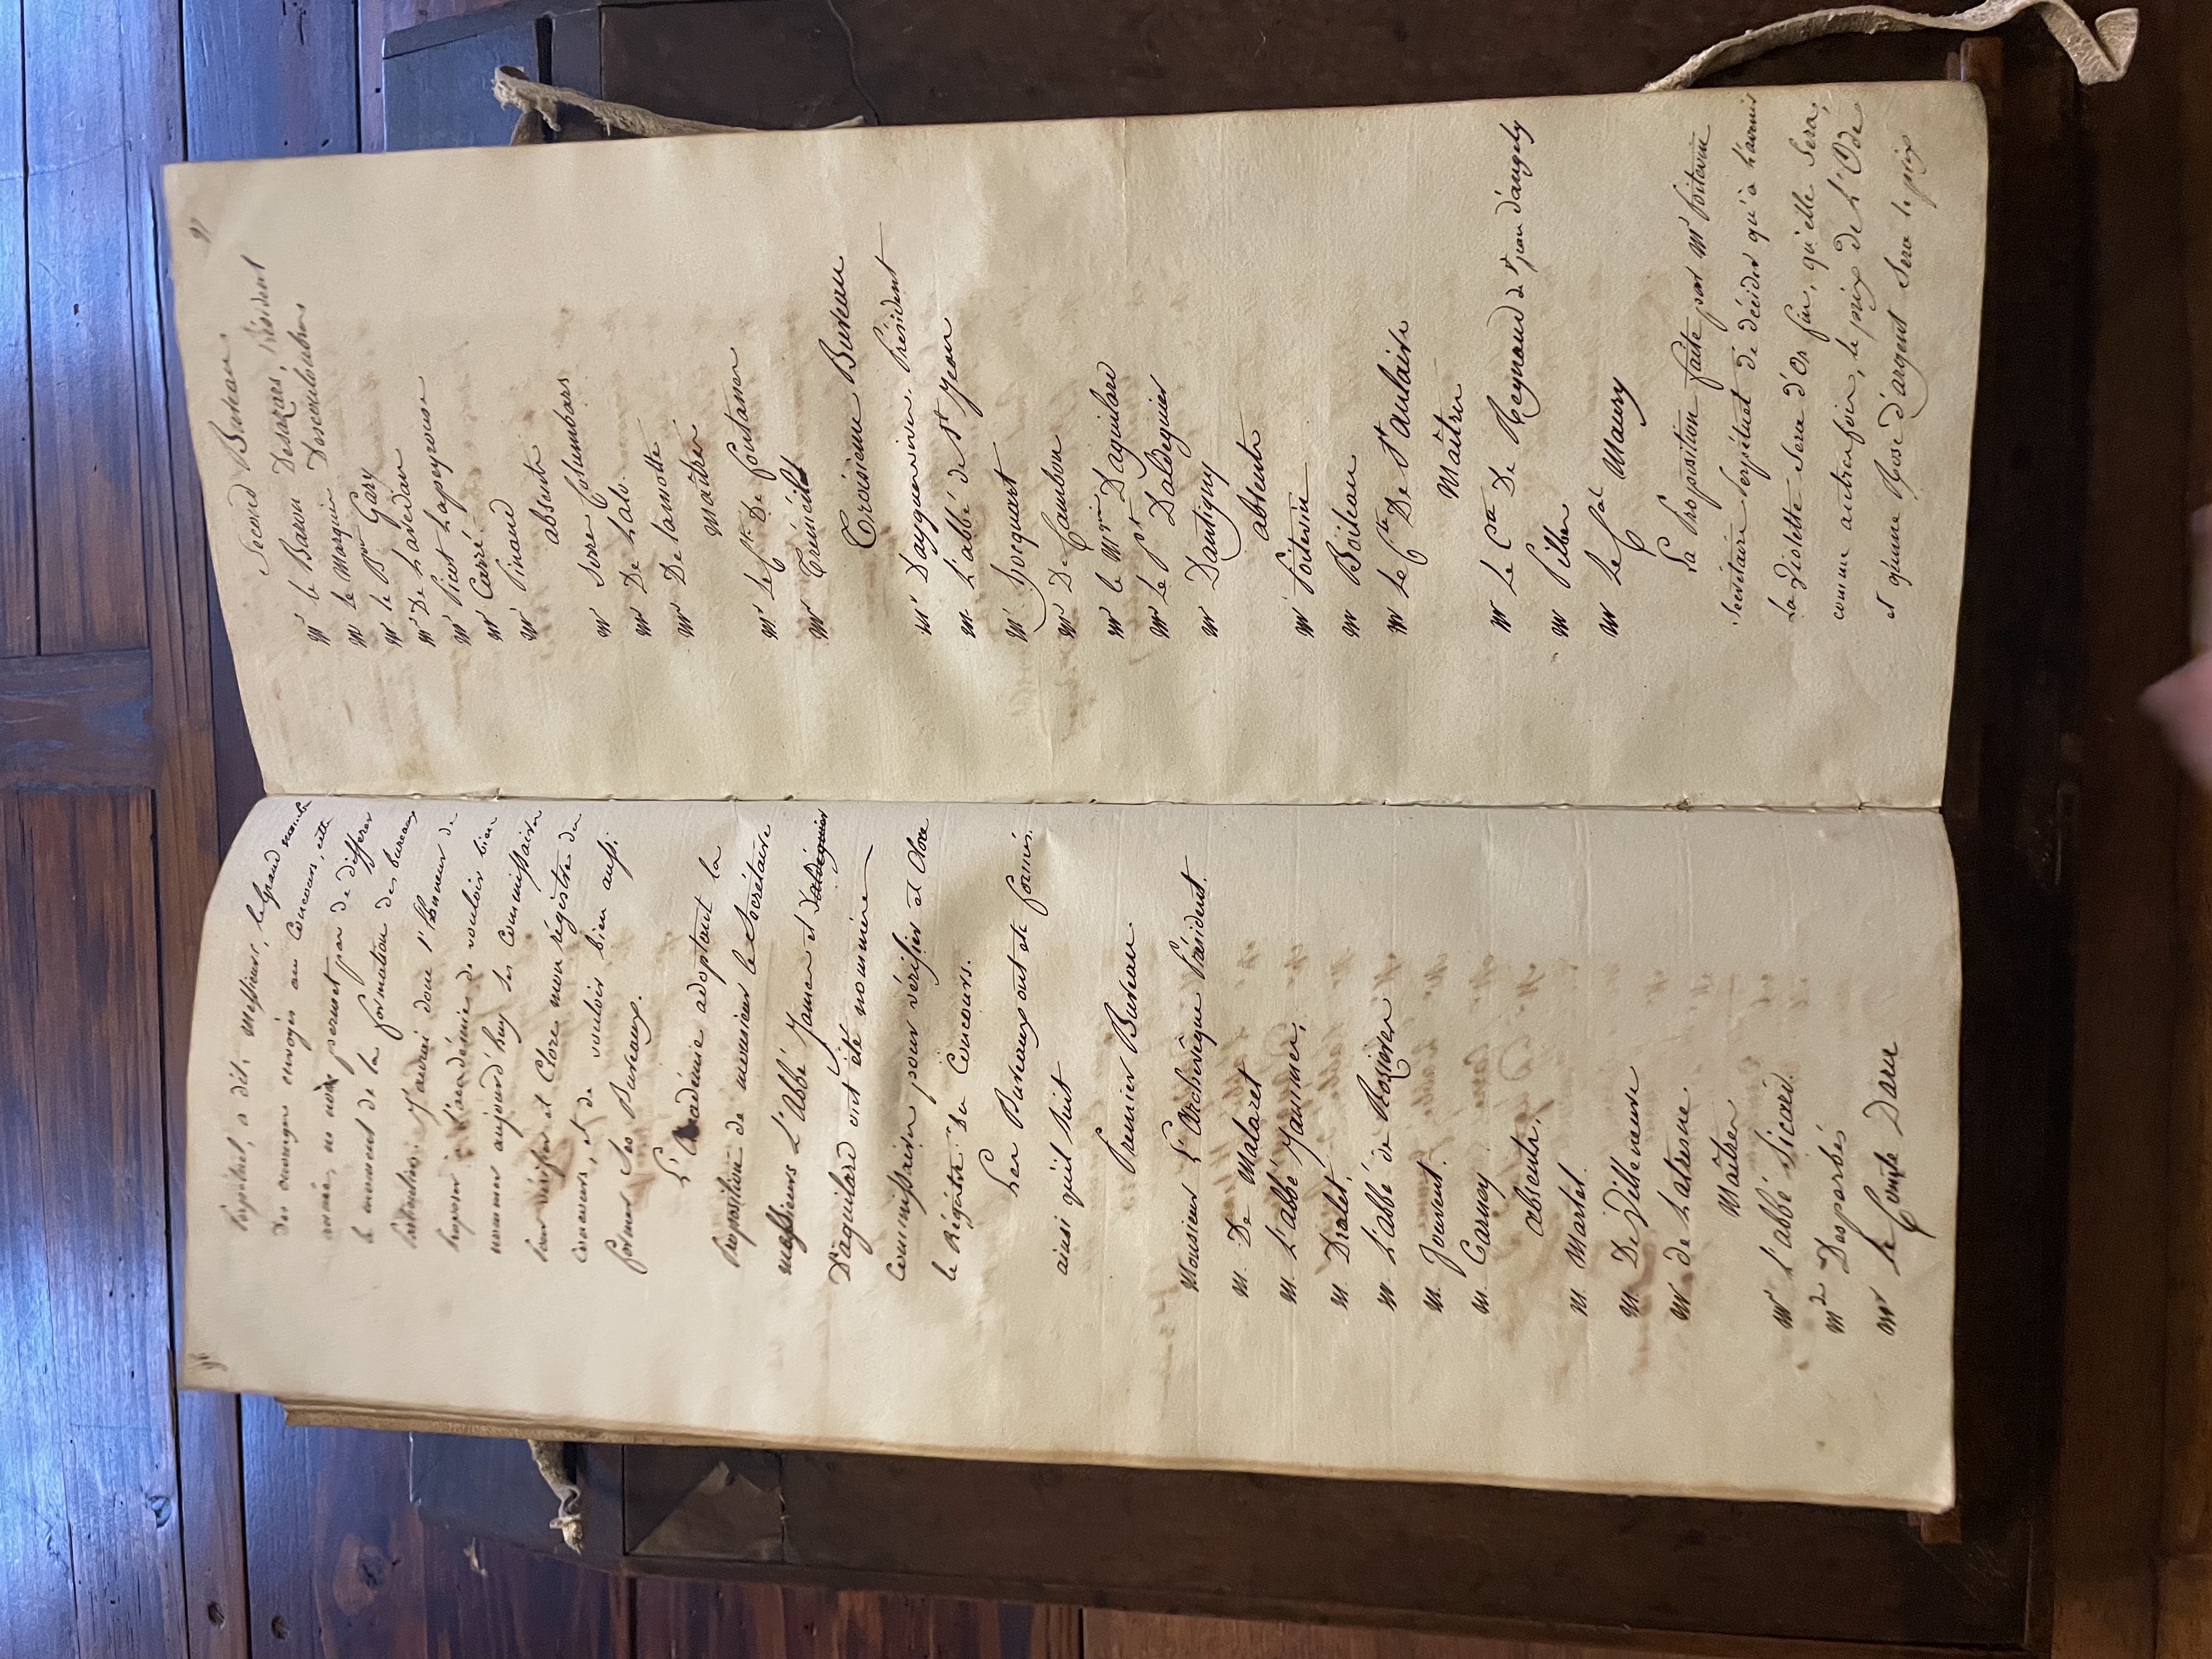 96
Perpétuel, a dit: messieurs, le grand nombre
des ouvrages envoyés au Concours, cette
année, ne nous permet pas de differer
le moment de la formation des bureaux
Particuliers. J'aurai donc l'honneur de
Proposer à l'académie de vouloir bien
nommer aujourd'huy ses Commissaires
Pour vérifier et Clore mon régistre du
Concours, et de vouloir bien aussi
former ses Bureaux.
L'académie adoptant la
Proposition de monsieur le Secrétaire
messieurs L'abbé Jamme et Daldéguier
D'aguilard ont été nommés
Commissaires pour vérifier et Clore
le Régistre du Concours.
Les Bureaux ont été formés
ainsi qu'il suit
Premier Bureau.
Monsieur L'archevêque Président.
M. De Malaret
M. L'abbé Jamme,
M. Dralet,
M. L'abbé de Rozières
M. Jouvent.
M. Carney
absents.
M. Martel.
M. De Villeneuve
Mr de Latresne.
Maîtres
Mr l'abbé Sicard.
Desparbés
Mr le Comte Daru
91
Second Bureau.
Mr le Baron Desazars, Président
Mr le Marquis Descouloubre
Mr le Bon Gary
Mr De Lavedan
Mr Picot Lapeyrouse
Mr Carré.
Mr Pinaud
absents
Mr Serre Columbars
Mr De Lalo.
Mr De Lamotte
Maîtres
Mr le Cte De fontanes
Mr Treneüil
Troisieme Bureau
Mr Dayguesvives, Président
M. L'abbé de St Jean
Mr. hocquart
Mr De Cambon
Mr le Mquis D'aguilard
Mr Le Pt Daldéguier
Mr Dantigny
absents
Mr Poitevin
Mr Boileau
Mr Le Cte De St Aulaire
Maîtres
Mr Le Cte De Regnaud de St jean d'angely
Mr Pilhes
Mr le Cal Maury
La Proposition faite par Mr Poitevin
Secrétaire Perpétuel de décider qu'à l'avenir
La Violette sera d'Or fin, qu'elle Sera,
comme autrefois, le prix de L'Ode
et qu'une Rose d'argent Sera le prix